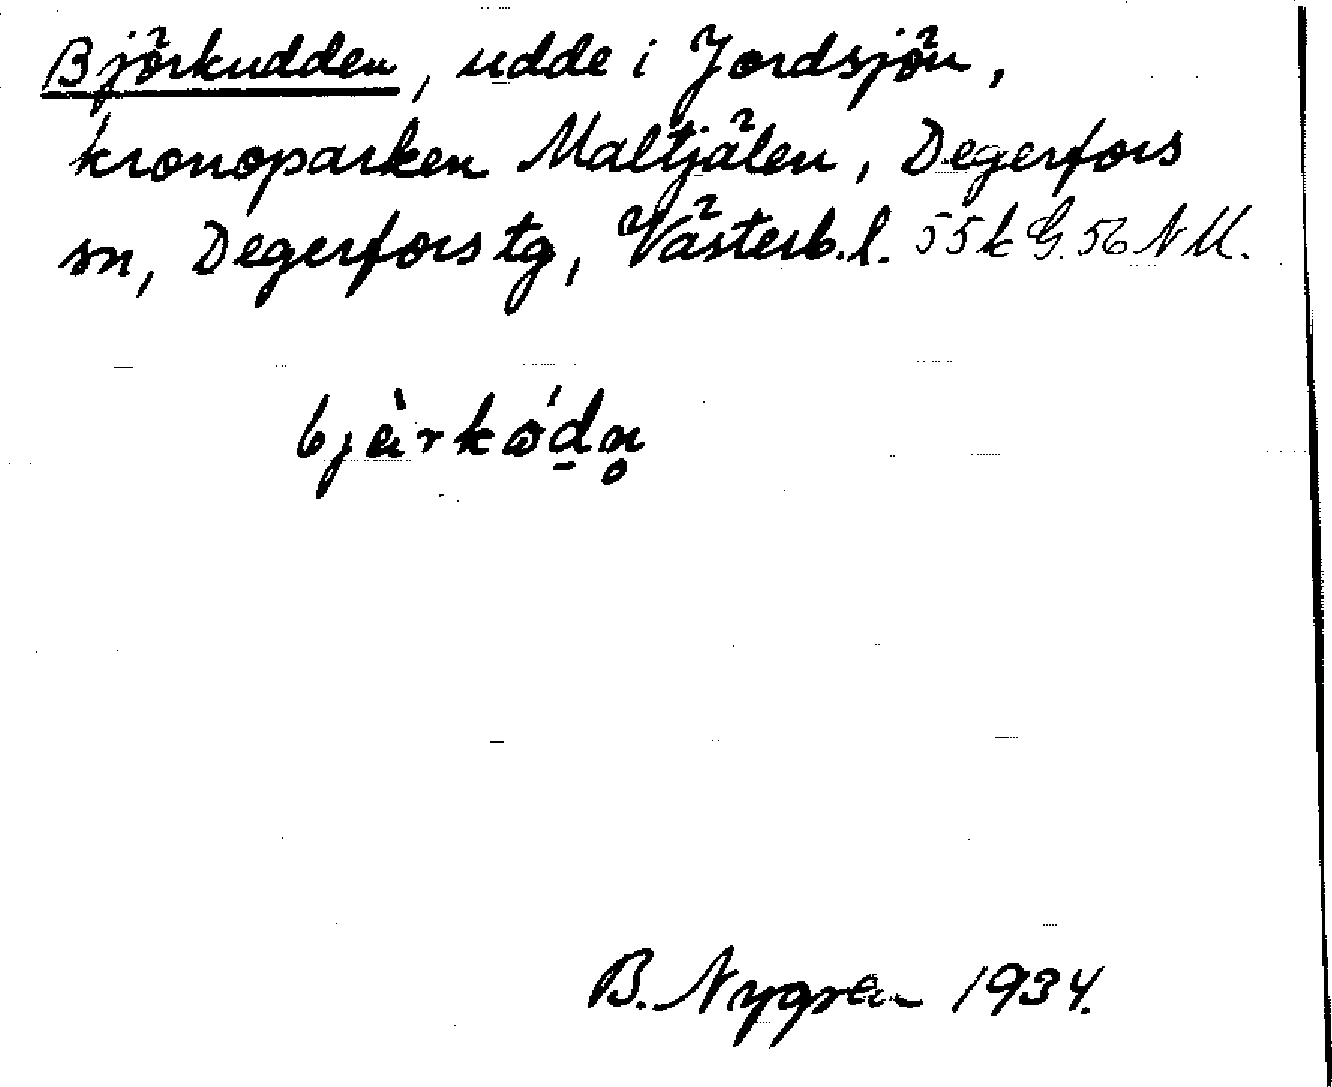 Björkudden, udde i Jordsjön,
kronoparken Maltjälen, Degerfors
sn, Degerfors tg, Västerb. l. 55k G. 56 N M.
bjæ̀rkǿḏn̥
B. Nygren 1934.